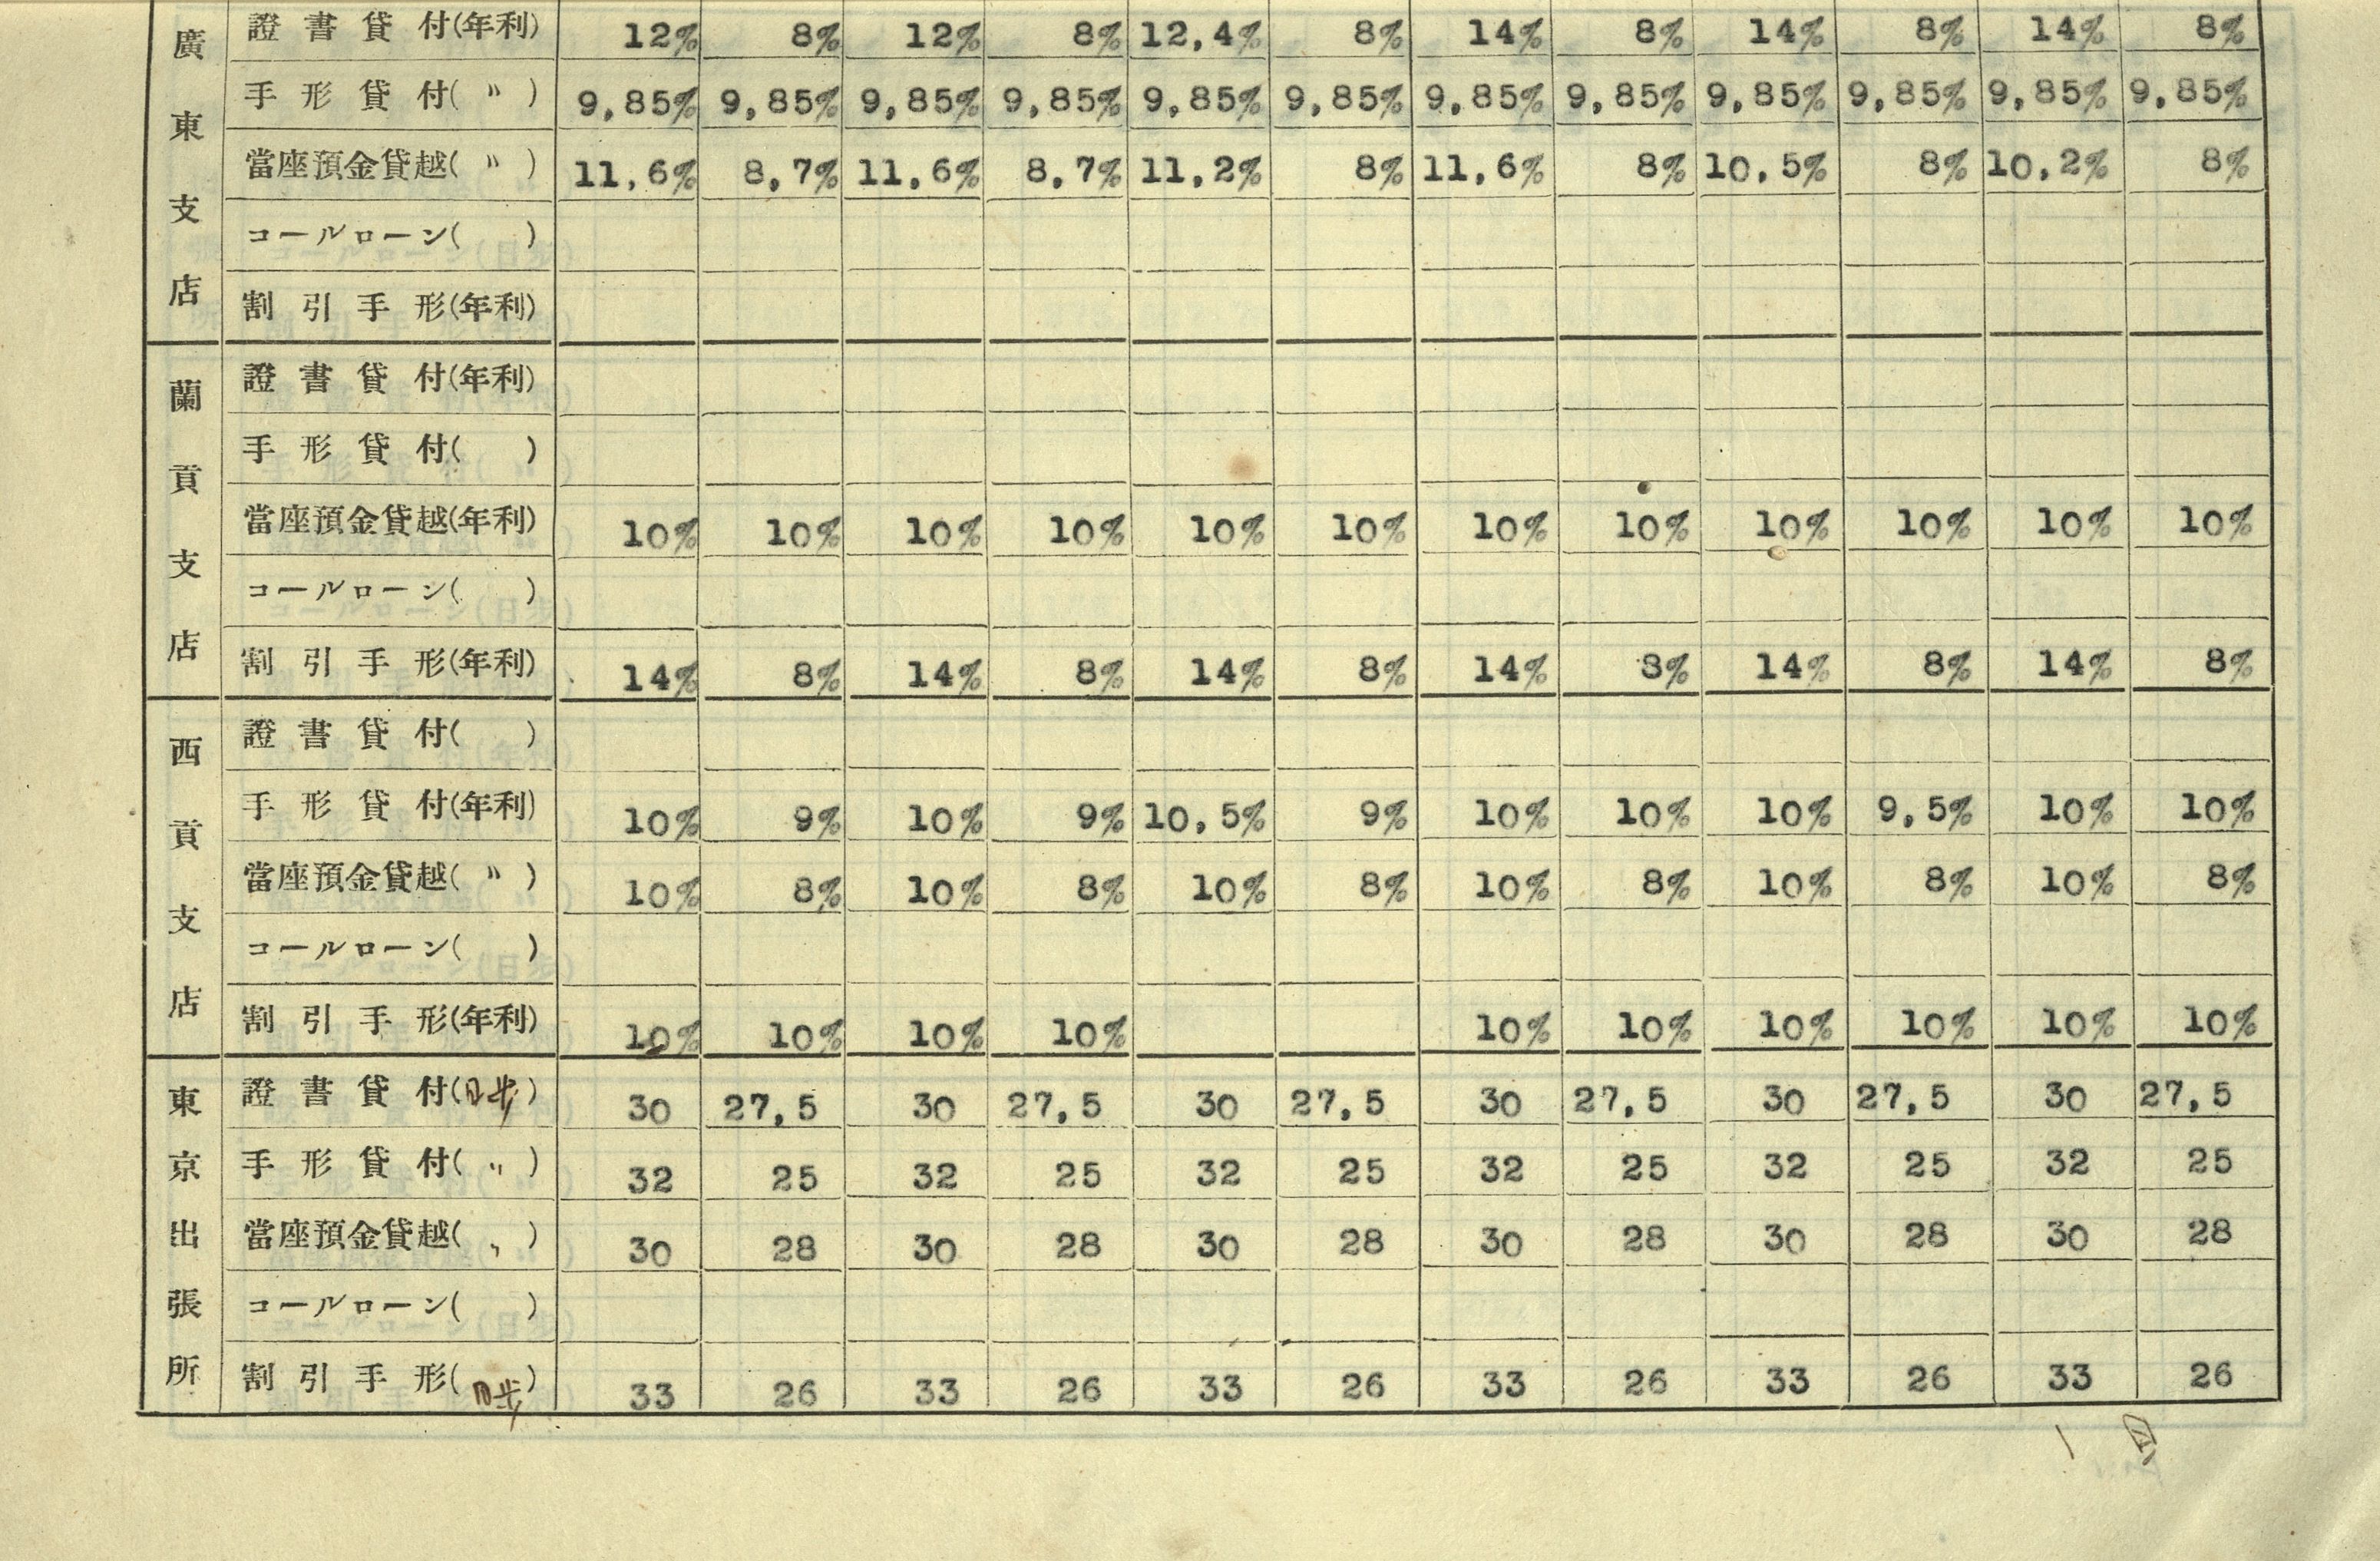 廣東支店
證書貸付(年利) 12% 8% 12% 8% 12,4% 8% 14% 8% 14% 8% 14% 8%
手形貸付( 〃 ) 9,85% 9,85% 9,85% 9,85% 9,85% 9,85% 9,85% 9,85% 9,85% 9,85% 9,85% 9,85%
當座預金貸越( 〃 ) 11,6% 8,7% 11,6% 8,7% 11,2% 8% 11,6% 8% 10,5% 8% 10,2% 8%
コールローン( )
割引手形(年利)
蘭貢支店
證書貸付(年利)
手形貸付( )
當座預金貸越(年利) 10% 10% 10% 10% 10% 10% 10% 10% 10% 10% 10% 10%
コールローン( )
割引手形(年利) 14% 8% 14% 8% 14% 8% 14% 8% 14% 8% 14% 8%
西貢支店
證書貸付( )
手形貸付(年利) 10% 9% 10% 9% 10,5% 9% 10% 10% 10% 9,5% 10% 10%
當座預金貸越( 〃 ) 10% 8% 10% 8% 10% 8% 10% 8% 10% 8% 10% 8%
コールローン( )
割引手形(年利) 10% 10% 10% 10% 10% 10% 10% 10% 10% 10%
東京出張所
證書貸付(日歩) 30 27,5 30 27,5 30 27,5 30 27,5 30 27,5 30 27,5
手形貸付( 〃 ) 32 25 32 25 32 25 32 25 32 25 32 25
當座預金貸越( 〃 ) 30 28 30 28 30 28 30 28 30 28 30 28
コールローン( )
割引手形(日歩) 33 26 33 26 33 26 33 26 33 26 33 26